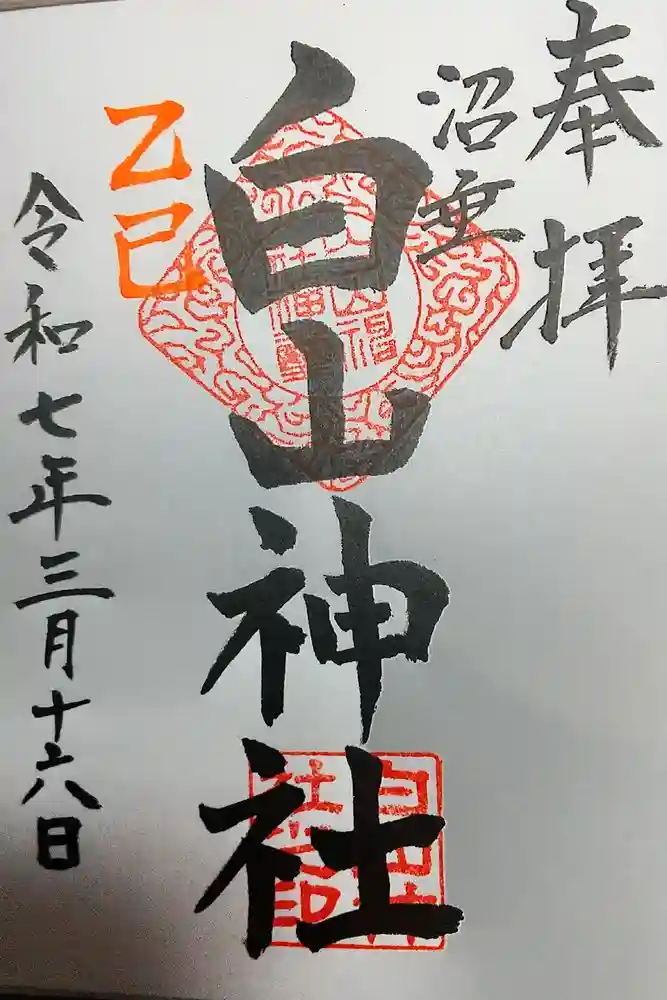 奉拝
沼垂
白山神社
乙巳
令和七年三月十六日